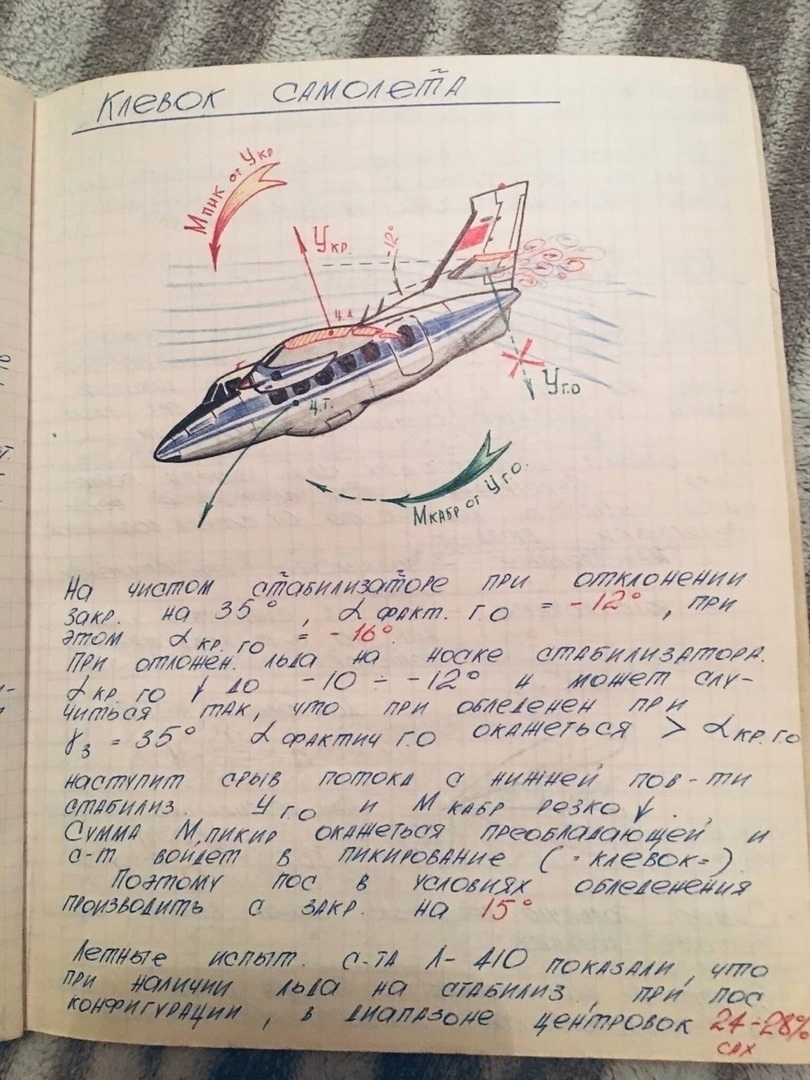 Клевок самолета
Мпик от Укр
Укр.
-12°
ц.д.
ц.т.
Уг.о
Мкабр от Уг.о.
На чистом стабилизаторе при отклонении
закр. на 35°, α факт. г.о = -12°, при
этом α кр. го = -16°
При отложен. льда на носке стабилизатора.
α кр. го ↓ до -10 ÷ -12° и может слу-
читься так, что при обледенен при
γз = 35° α фактич г.о окажеться > α кр. г.о
наступит срыв потока с нижней пов-ти
стабилиз. У г.о и М кабр резко ↓.
Сумма М.пикир окажеться преобладающей и
с-т войдет в пикирование (=клевок=).
Поэтому пос в условиях обледенения
производить с закр. на 15°
Летные испыт. с-та Л-410 показали, что
при наличии льда на стабилиз, при пос
конфигурации, в диапазоне центровок 24-28%
сах